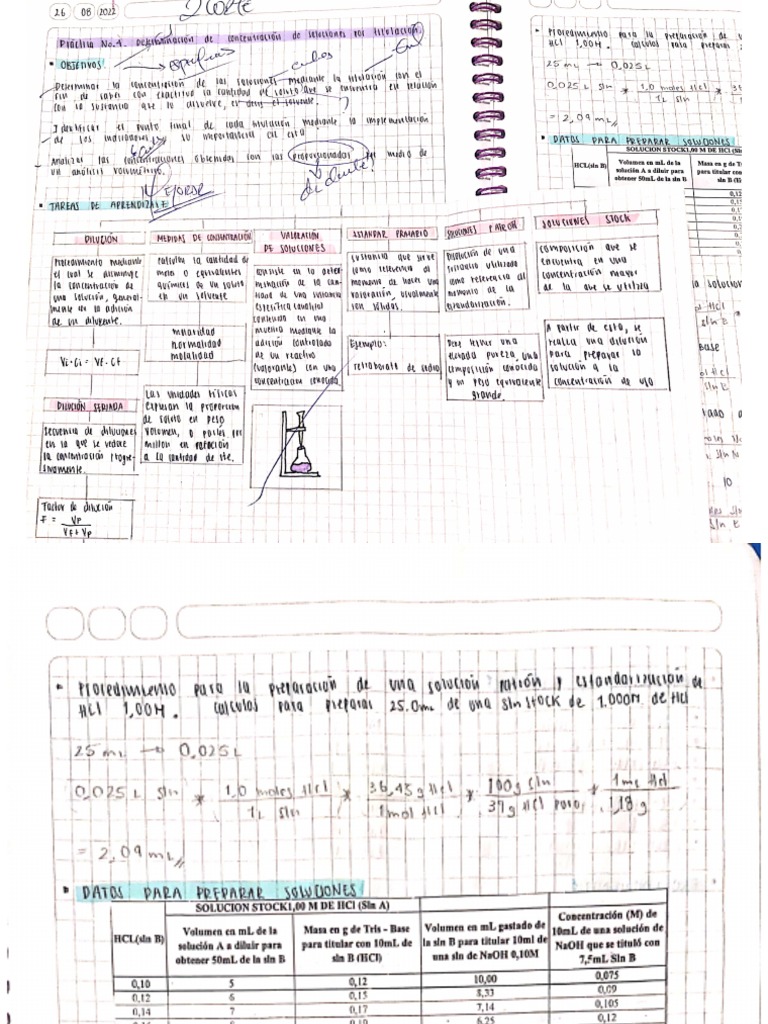 26 08 2022
Práctica No.1. Determinación de concentración de soluciones por titulación.
• OBJETIVOS
específicos
Determinar la concentración de las soluciones mediante la titulación con el
fin de saber con exactitud la cantidad de soluto que se encuentra en relación
con la sustancia que lo disuelve, es decir el solvente.
Identificar el punto final de cada titulación mediante la implementación
de los indicadores y su importancia en esta
Analizar las concentraciones obtenidas con las proporcionadas por medio de
un análisis volumétrico.
de dónde?
MEJORAR
• TAREAS DE APRENDIZAJE
DILUCIÓN
Procedimiento mediante
el cual se disminuye
la concentración de
una solución, general-
mente en la adición
de un diluyente.
Vi·Ci = Vf·Cf
DILUCIÓN SERIADA
Secuencia de diluciones
en la que se reduce
la concentración progre-
sivamente.
Factor de dilución
F = Vp
Vf+Vp
MEDIDAS DE CONCENTRACIÓN
Calcular la cantidad de
masa o equivalentes
químicos de un soluto
en un solvente
molaridad
normalidad
molalidad
Las unidades físicas
expresan la proporción
de soluto en peso
volumen, o partes por
millón en relación
a la cantidad de ste.
VALORACIÓN
DE SOLUCIONES
Consiste en la deter-
minación de la can-
tidad de una sustancia
específica (analito)
contenido en una
muestra mediante la
adición controlada
de un reactivo
(valorante) con una
concentración conocida
ESTANDAR PRIMARIO
Sustancia que sirve
como referencia al
momento de hacer una
valoración, usualmente
son sólidos.
Ejemplo:
tetraborato de sodio
SOLUCIONES PATRON
Disolución de una
sustancia utilizada
como referencia al
momento de la
estandarización.
Debe tener una
elevada pureza, una
composición conocida
y un peso equivalente
grande.
SOLUCIONES STOCK
Composición que se
encuentra en una
concentración mayor
de la que se utiliza
A partir de esta, se
realiza una dilución
para preparar la
solución a la
concentración de uso
• Procedimiento para la preparación de
HCl 1,00M. Calculos para preparar
25 mL → 0,025L
0,025L sln * 1,0 moles HCl
1L sln
= 2,09 mL
• DATOS PARA PREPARAR SOLUCIONES
SOLUCION STOCK1,00 M DE HCl (Sln
HCL(sln B)
Volumen en mL de la
solución A a diluir para
obtener 50mL de la sln B
Masa en g de T
para titular con
sln B (H
• Procedimiento para la preparación de una solución patrón y estandarización de
HCl 1,00M. Calculos para preparar 25.0mL de una sln STOCK de 1.000M de HCl
25 mL → 0,025L
0,025L sln * 1,0 moles HCl * 36,45 g HCl * 100g sln * 1mL HCl
1L sln 1mol HCl 37g HCl puro 1,18 g
= 2,09 mL
• DATOS PARA PREPARAR SOLUCIONES
SOLUCION STOCK1,00 M DE HCl (Sln A)
HCL(sln B)
Volumen en mL de la
solución A a diluir para
obtener 50mL de la sln B
Masa en g de Tris - Base
para titular con 10mL de
sln B (HCl)
Volumen en mL gastado de
la sln B para titular 10ml de
una sln de NaOH 0,10M
Concentración (M) de
10mL de una solución de
NaOH que se tituló con
7,5mL Sln B
0,10 5 0,12 10,00 0,075
0,12 6 0,15 8,33 0,09
0,14 7 0,17 7,14 0,105
6,25 0,12